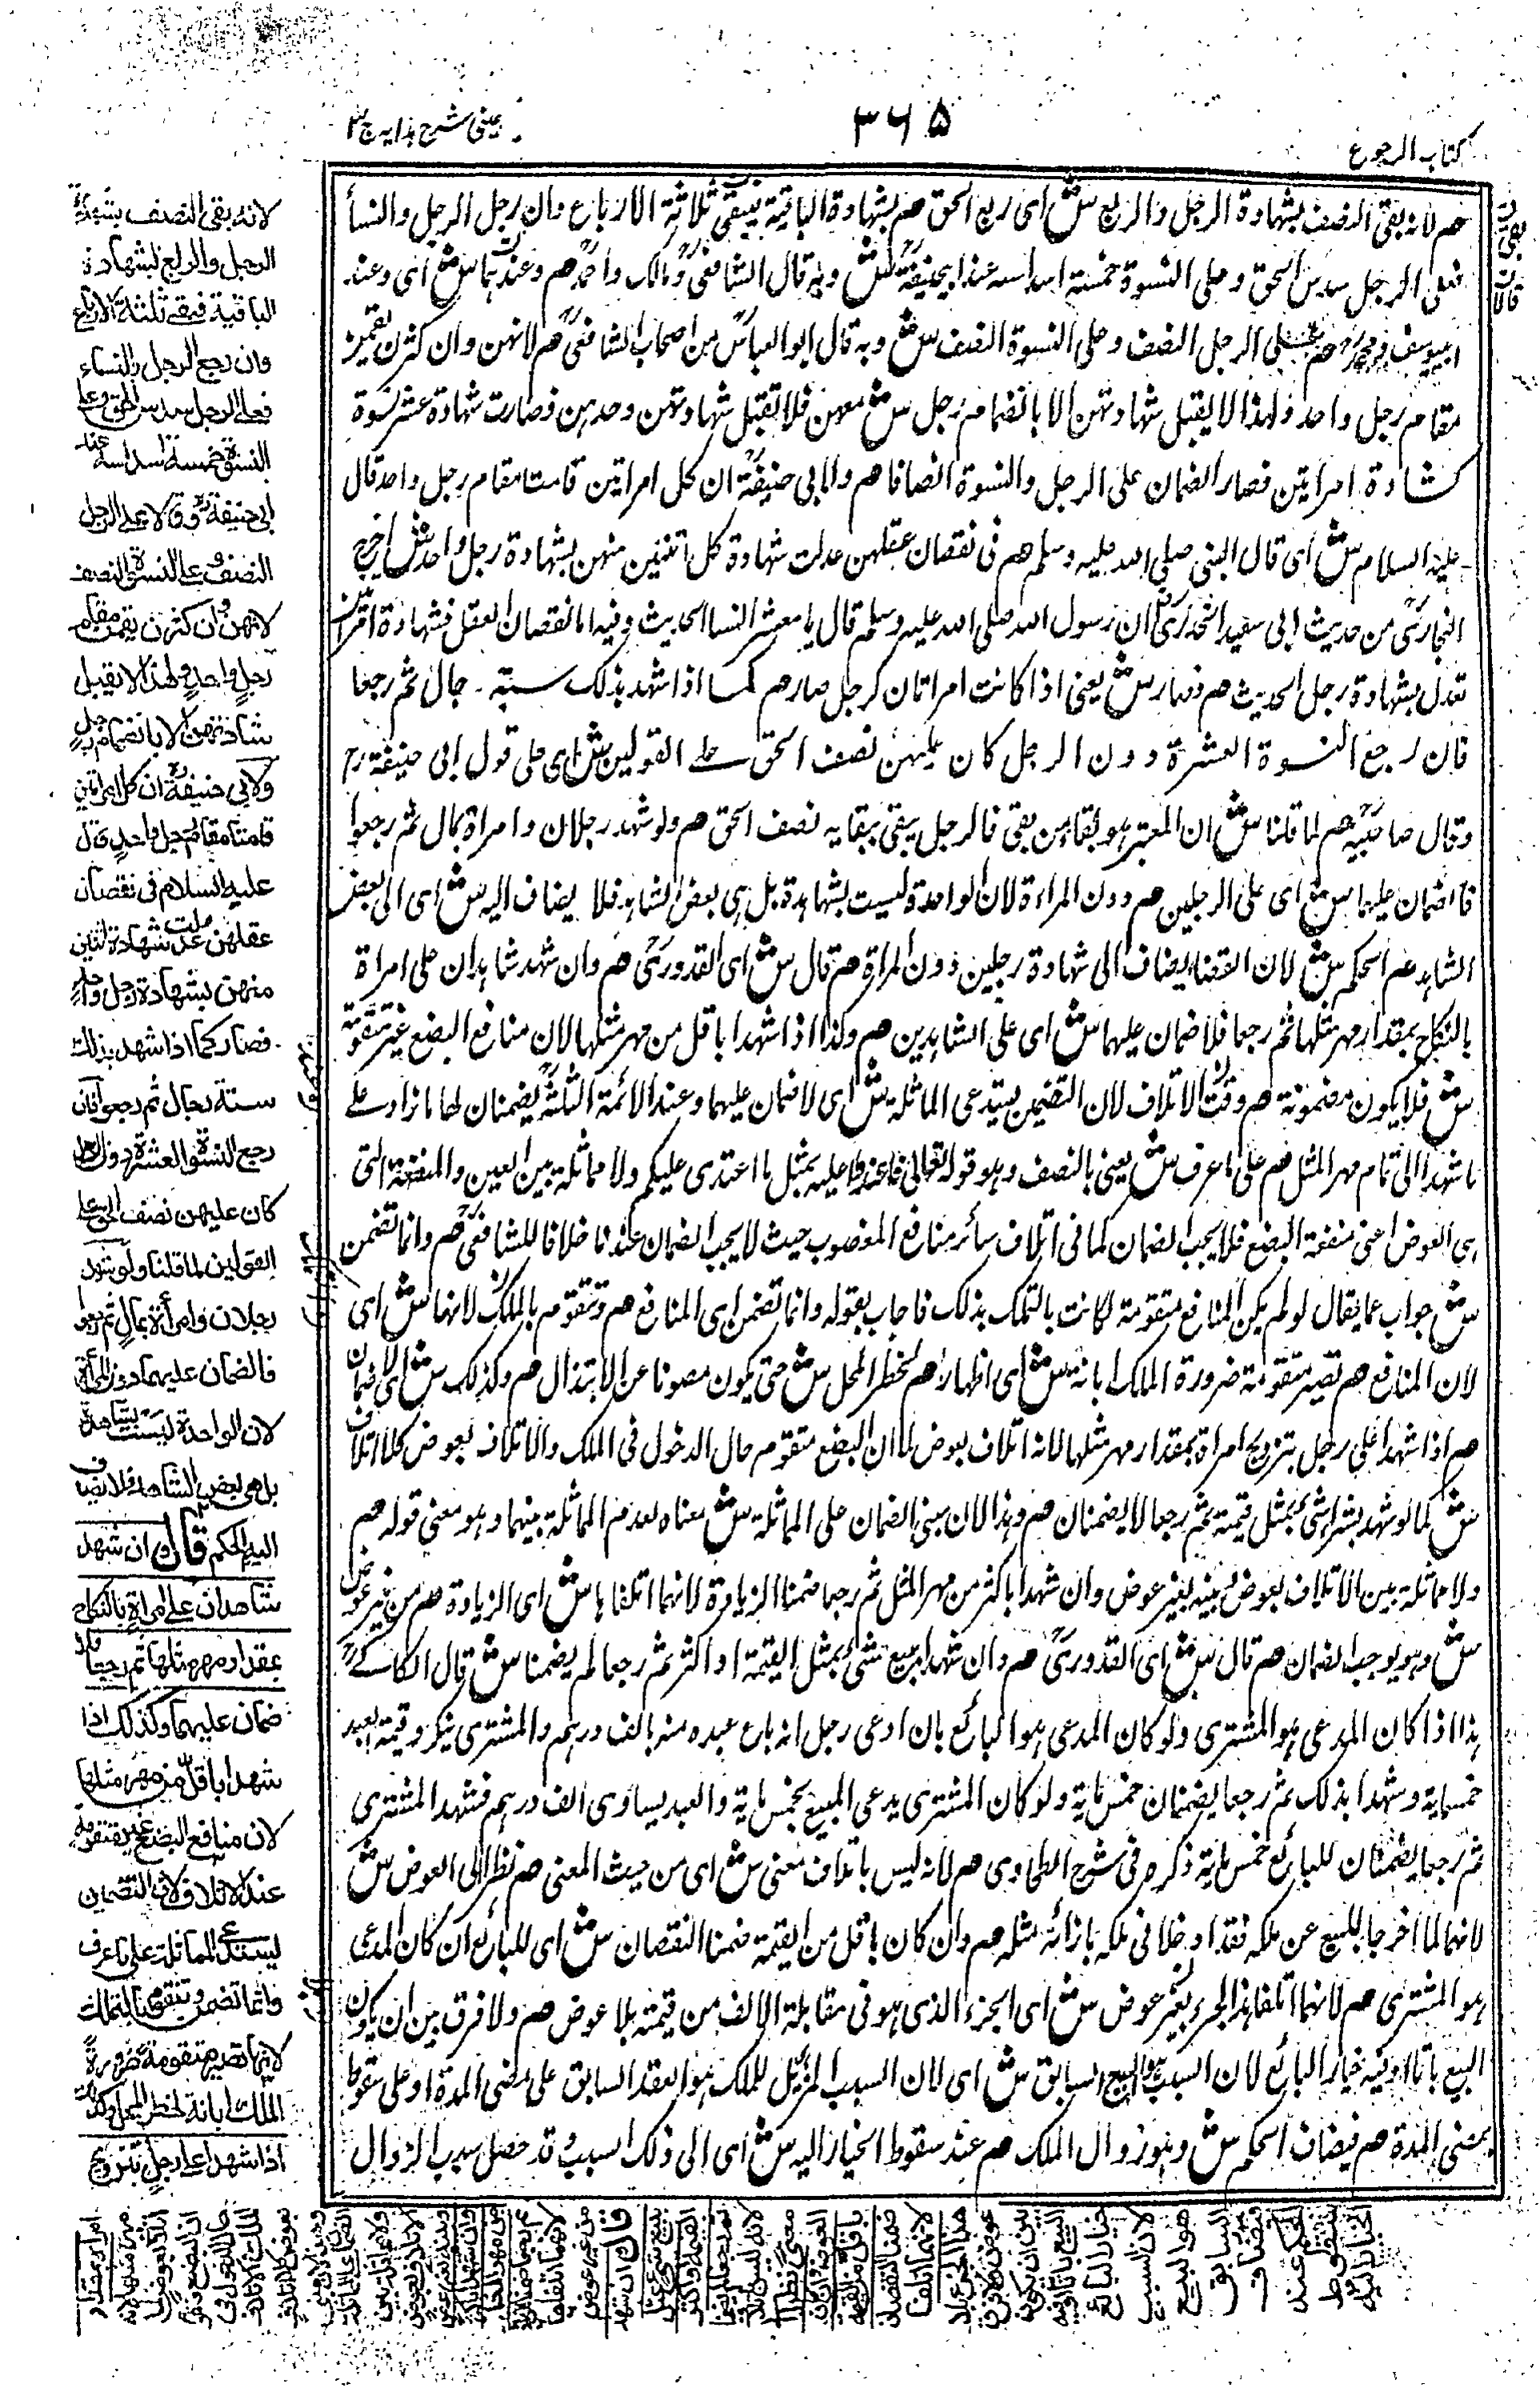 كتاب الرجوع
٣٦٥
عينى شرح هدايه ج٣
هم لانه بقى النصف بشهادة الرجل والربع ش اى ربع الحق هم بشهادة الباقية فيبقى ثلاثة الارباع وان رجع الرجل والنسا
فعلى الرجل سدس الحق وعلى النسوة خمسة اسداسه عند ابيحنيفة ش وبه قال الشافعى ومالك واحمد هم وعندهما ش اى وعند
ابيوسف ومحمد هم على الرجل النصف وعلى النسوة النصف ش وبه قال ابو العباس من اصحاب الشافعى هم لانهن وان كثرن يقمن
مقام رجل واحد ولهذا لا يقبل شهادتهن الا بانضمام رجل ش معهن فلا تقبل شهادتهن وحدهن فصارت شهادة عشر نسوة
كشهادة امراتين فصار الضمان على الرجل والنسوة انصافا هم ولابى حنيفة ان كل امراتين قامتا مقام رجل واحد قال
عليه السلام ش اى قال النبى صلى الله عليه وسلم هم فى نقصان عقلهن عدلت شهادة كل اثنتين منهن بشهادة رجل واحد ش اخرج
البخارى من حديث ابى سعيد الخدرى ان رسول الله صلى الله عليه وسلم قال يا معشر النسا الحديث وفيه اما نقصان العقل فشهادة امراتين
تعدل بشهادة رجل الحديث هم فصار ش يعنى اذا كانت امراتان كرجل صار هم كما اذا شهد بذلك ستة رجال ثم رجعا
فان رجع النسوة العشرة دون الرجل كان عليهن نصف الحق على القولين ش اى على قول ابى حنيفة رح
وقال صاحبيه هم لما قلنا ش ان المعتبر هو بقاء من بقى فالرجل يبقى ببقايه نصف الحق هم ولو شهد رجلان وامراة بمال ثم رجعوا
فالضمان عليهما ش اى على الرجلين هم دون المراءة لان الواحدة ليست بشاهدة بل هى بعض الشاهد فلا يضاف اليه ش اى الى بعض
الشاهد هم الحكم ش لان القضاء يضاف الى شهادة رجلين دون المراة هم قال ش اى القدورى هم وان شهد شاهدان على امراة
بالنكاح بمقدار مهر مثلها ثم رجعا فلا ضمان عليهما ش اى على الشاهدين هم وكذا اذا شهدا باقل من مهر مثلها لان منافع البضع غير متقومة
ش فلا يكون مضمونة هم وقت الاتلاف لان التضمين يستدعى المماثلة ش اى لا ضمان عليهما وعند الائمة الثلثة يضمنان لها ما زاد على
ما شهدا الى تمام مهر المثل هم على ما عرف ش يعنى بالنصف وهو قوله تعالى فاعتدوا عليه بمثل ما اعتدى عليكم ولا مماثلة بين العين والمنفعة التى
هى العوض اعنى منفعة البضع فلا يجب الضمان كما فى اتلاف سائر منافع المغصوب حيث لا يجب الضمان عندنا خلافا للشافعى هم وانما تضمن
ش جواب عما يقال لو لم يكن المنافع متقومة لكانت بالتملك بذلك فاجاب بقوله وانما تضمن اى المنافع هم وتتقوم بالملك لانها ش اى
لان المنافع هم تصير متقومة ضرورة الملك ابانة ش اى اظهارا هم لخطر المحل ش حتى يكون مصونا عن الابتذال هم وكذلك ش اى لا ضمان
هم اذا شهدا على رجل بتزويج امراة بمقدار مهر مثلها لانه اتلاف بعوض لما ان البضع متقوم حال الدخول فى الملك والاتلاف بعوض كلا اتلاف
ش كما لو شهد بشراء شى بمثل قيمته ثم رجعا لا يضمنان هم وهذا لان مبنى الضمان على المماثلة ش معناه لعدم المماثلة بينهما وهو معنى قوله هم
ولا مماثلة بين الاتلاف بعوض وبينه بغير عوض وان شهدا باكثر من مهر المثل ثم رجعا ضمنا الزيادة لانهما اتلفاها ش اى الزيادة هم من غير عوض
ش وهو يوجب الضمان هم قال ش اى القدورى هم وان شهدا ببيع شى بمثل القيمة او اكثر ثم رجعا لم يضمنا ش قال الكاكى
هذا اذا كان المدعى هو المشترى ولو كان المدعى هو البائع بان ادعى رجل انه باع عبده منه بالف درهم والمشترى ينكر وقيمة العبد
خمسماية وشهدا بذلك ثم رجعا يضمنان خمسماية ولو كان المشترى يدعى المبيع بخمسماية والعبد يساوى الف درهم فشهدا المشترى
ثم رجعا يضمنان للبائع خمسماية ذكره فى شرح الطحاوى هم لانه ليس باتلاف معنى ش اى من حيث المعنى هم نظرا الى العوض ش
لانهما لما اخرجا المبيع عن ملكه فقد ادخلا فى ملكه بازائه مثله هم وان كان باقل من القيمة ضمنا النقصان ش اى للبائع ان كان المدعى
هو المشترى هم لانهما اتلفا هذا الجزء بغير عوض ش اى الجزء الذى هو فى مقابلة الالف من قيمته بلا عوض هم ولا فرق بين ان يكون
البيع باتا او فيه خيار البائع لان السبب هو البيع السابق ش اى لان السبب المزيل للملك هو العقد السابق على مضى المدة او على سقوطها
بمضى المدة هم فيضاف الحكم ش وهو زوال الملك هم عند سقوط الخيار اليه ش اى الى ذلك السبب وقد حصل سبب الزوال
لانه بقى النصف بشهادة
الرجل والربع بشهادة
الباقية فبقى ثلثة الارباع
وان رجع الرجل والنساء
فعلى الرجل سدس الحق وعلى
النسوة خمسة اسداسه عند
ابى حنيفة وقالا على الرجل
النصف وعلى النسوة النصف
لانهن وان كثرن يقمن مقام
رجل واحد ولهذا لا تقبل
شهادتهن الا بانضمام رجل
ولابى حنيفة ان كل امراتين
قامتا مقام رجل واحد قال
عليه السلام فى نقصان
عقلهن عدلت شهادة اثنين
منهن بشهادة رجل واحد
فصار كما اذا شهد بذلك
ستة رجال ثم رجعوا فان
رجع النسوة العشرة دون الرجل
كان عليهن نصف الحق على
القولين لما قلنا ولو شهد
رجلان وامرأة بمال ثم رجعوا
فالضمان عليهما دون المرأة
لان الواحدة ليست بشاهدة
بل هى بعض الشاهد فلا يضاف
اليه الحكم قال وان شهد
شاهدان على امرأة بالنكاح
بمقدار مهر مثلها ثم رجعا فلا
ضمان عليهما وكذلك اذا
شهدا باقل من مهر مثلها
لان منافع البضع غير متقومة
عند الاتلاف لان التضمين
يستدعى المماثلة على ما عرف
وانما تضمن وتتقوم بالتملك
لانها تصير متقومة ضرورة
الملك ابانة لخطر المحل وكذلك
اذا شهدا على رجل بتزويج